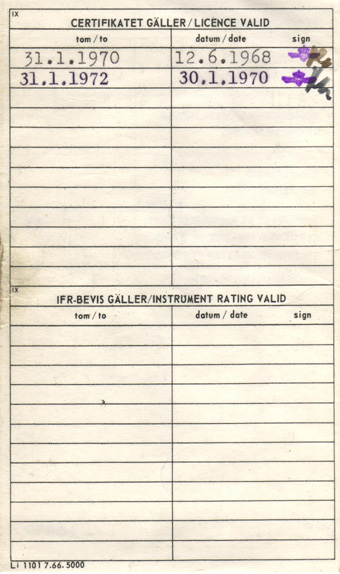 IX
CERTIFIKATET GÄLLER/LICENCE VALID
tom/to datum/date sign
31.1.1970 12.6.1968
31.1.1972 30.1.1970
IX
IFR-BEVIS GÄLLER/INSTRUMENT RATING VALID
tom/to datum/date sign
Li 1101 7.66.5000